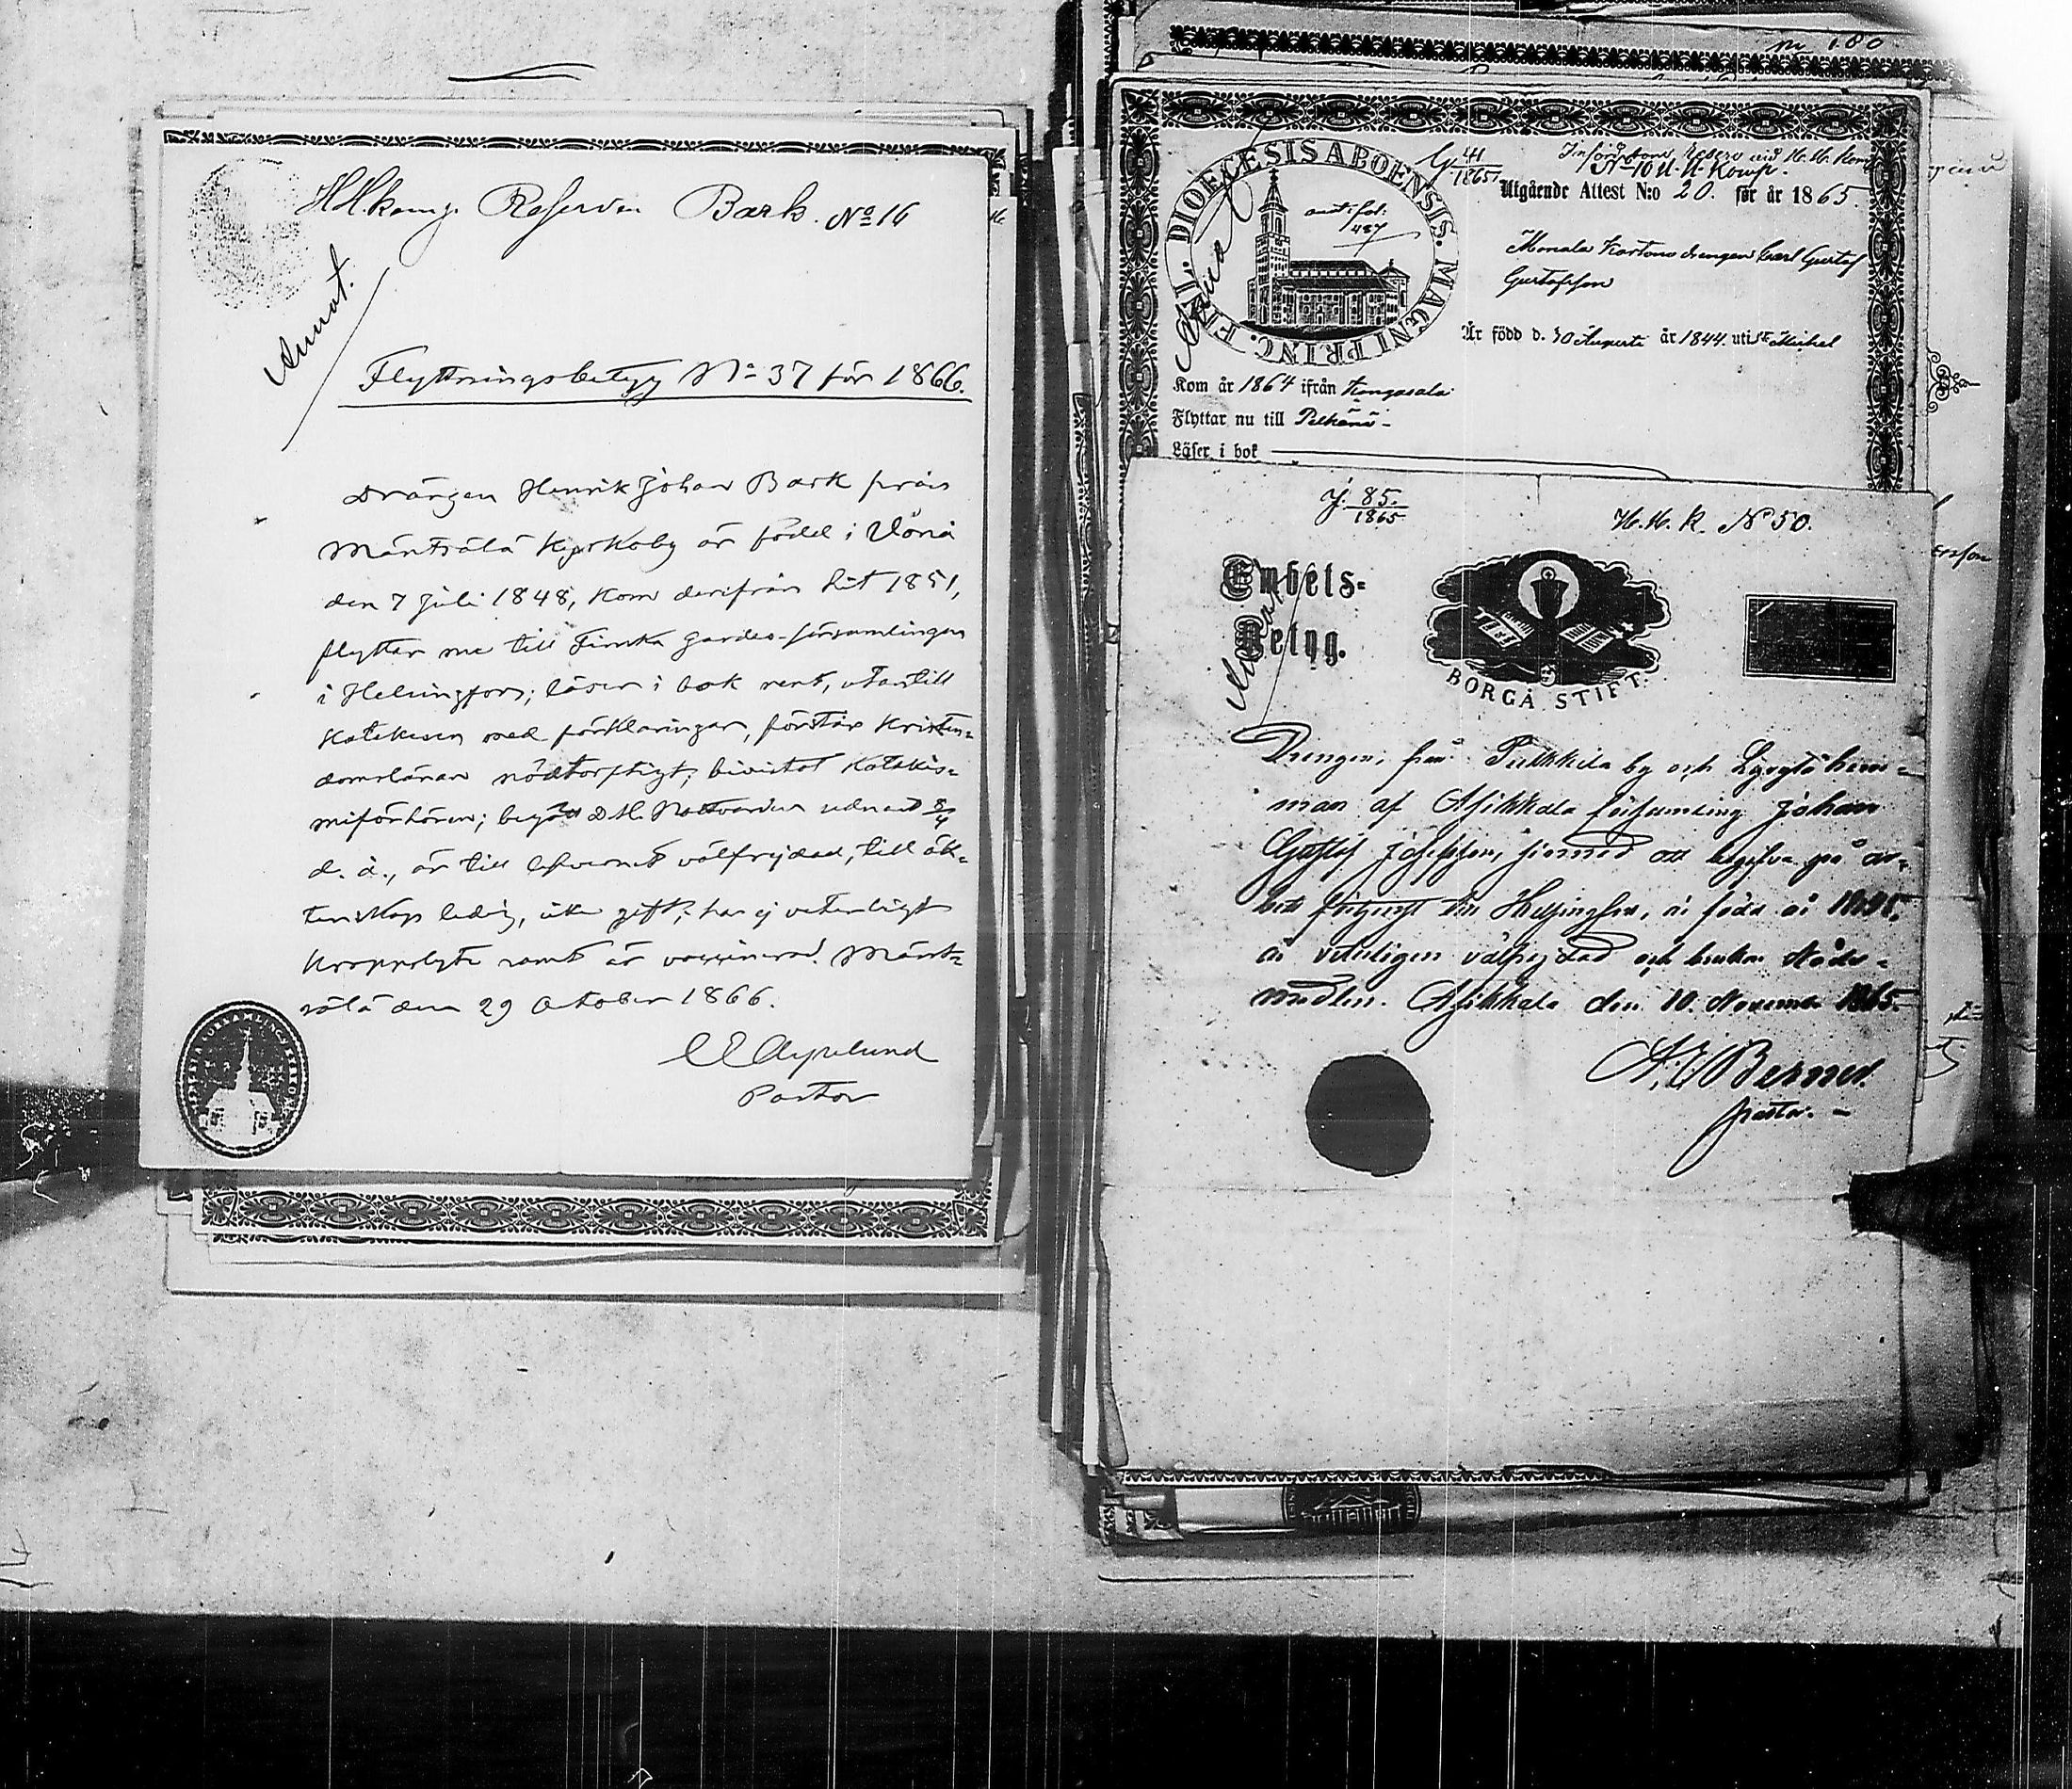 H H komp. Reserven Bark. No 16
Annot.
Flyttningsbetyg No 37 för 1866.
Drängen Henrik Johan Bark från
Mäntsälä Kyrkoby är född i Vörå
den 7 Juli 1848, kom derifrån hit 1851,
flyttar nu till Finska gardes-församlingen
i Helsingfors; läser i bok rent, utantill
Katekesen med förklaringar, förstår Kristen-
domsläran nödtorftigt; bivistat Katekis-
miförhören; begått D.H. Nattvarden sednast 8/4
d. å., är till lefvernet välfrejdad, till äk-
tenskap ledig, icke gift; har ej veterligt
Kroppslyte samt är vaccinerad. Mänt-
sälä den 29 October 1866.
Pastor
nr 180
DIOECESIS ABOENSIS. MAGNI PRINC. FINL.
ant: fol: 487
41/1865
No 10 H. H. Komp.
Utgående Attest N:o 20. för år 1865.
Carl Gustaf
Gustafsson
Är född d. 30 Augusti år 1844. uti St Michel
Kom år 1864 ifrån Kangasala
Flyttar nu till Pelkäne -
Läser i bok
J. 85./1865
H. H. K. No 50.
Embets-
Betyg.
BORGÅ STIFT.
Drengen, från Pulkkila by och hem-
man af Asikkala församling Johan
Gustaf Josefsson, ämnad att begifva på ar-
bets förtjenst till Helsingfors, är född år
är veterligen välfrejdad och brukar Nåde-
medlen. Asikkala den 10. November 1865.
pastor. -
ersson